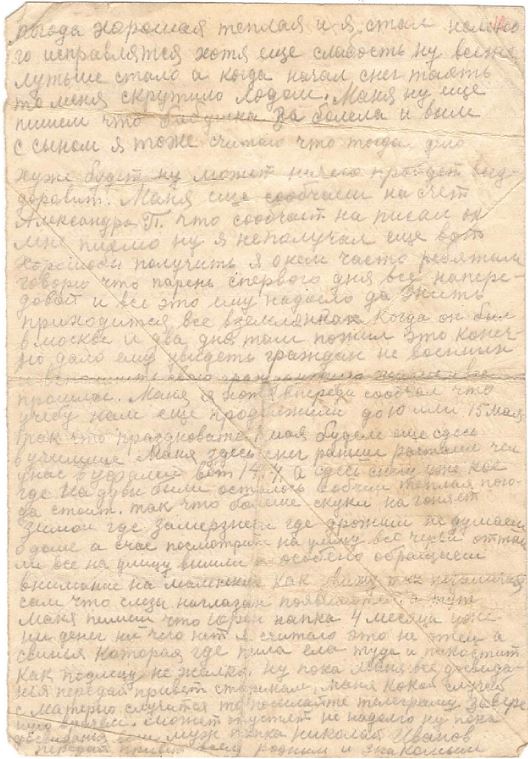 погода хорошая теплая и я стал немно
го исправлятся хотя еще слабость ну все же
лутьше стало а когда начал снег таять
то меня скрутило ходом. Маня ну еще
пишем что бабушка за болела и были
с сыном я тоже считаю что тогда дело
хуже будет ну может ничего пройдет выз
доровит. Маня еще сообчаеш на счет
Александра П. что сообчает на писал он
мне писмо ну я неполучал еще вот
хорошобы получить я онем часто ребятам
говорю что парень спервого дня все напере-
довой и все это ему надоело да жить
приходится все вземлянках когда он был
в москве и два дня там пожил это конеч
но дало ему увидеть граждан не военных
вспомнить свою гражданскую жизнь и все
прошлое. Маня я хотя впереди сообчал что
учебу нам еще продлежили до 10 или 15 мая
так что праздновать 1 мая будем еще сдесь
вучилище. Маня здесь снег раньше растаял чем
унас в уфалей вот 14/4 а сдесь снегу уже кое
где на дувы были осталось вобчем теплая пого-
да стоит. так что больше скуки на гоняет
Зимой где замерзнеш где дрожиш не думаеш
о доме а счас посмотриш на улицу все черви оттая
ли все на улицу вышли и особено обращаеш
внимание на маленьких как увижу так незамечаю
сам что слезы наглазах появляются а тут
Маня пишеш что горем папка 4 месяца уже
ни денег ни чего нет я считаю это не отец а
свинья которая где пила ела туда и пакостит
как подлецу не жалко. ну пока Маня все досвида-
нья передай привет старикам, Маня какой случай
с матерью случится то посылайте телеграму. Завере
ную врачем. может отпустят не надолго ну пока
досвиданья твой муж папка Николай Иванов
передай привет всем родным и знакомым